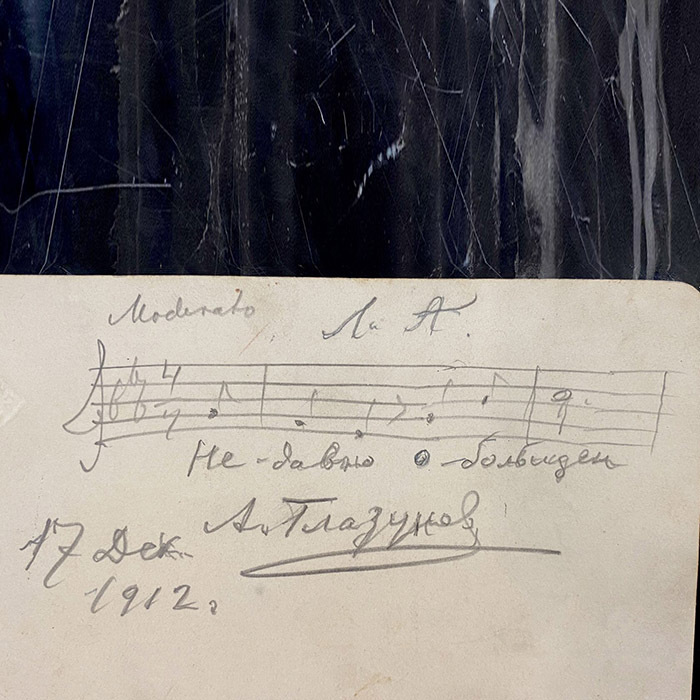 Moderato
4
4
Не-давно о-больщен
А. Глазунов
17 Дек.
1912.